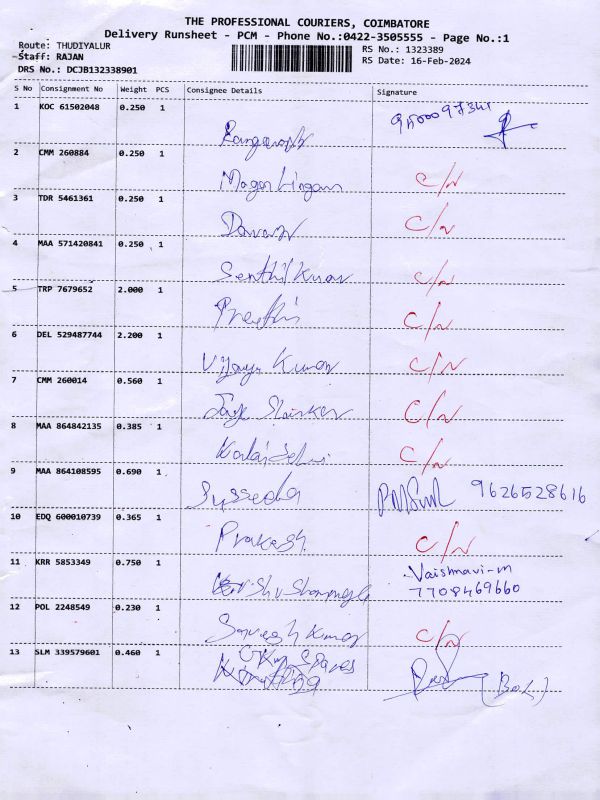 THE PROFESSIONAL COURIERS, COIMBATORE
Delivery Runsheet - PCM - Phone No.:0422-3505555 - Page No.:1
Route: THUDIYALUR RS No.: 1323389
Staff: RAJAN RS Date: 16-Feb-2024
DRS No.: DCJB132338901
S No Consignment No Weight PCS Consignee Details Signature
1 KOC 61502048 0.250 1
2 CMM 260884 0.250 1
Magar Lingam C/N
3 TDR 5461361 0.250 1
C/N
4 MAA 571420841 0.250 1
Senthil Kumar C/N
5 TRP 7679652 2.000 1
Preethi C/N
6 DEL 529487744 2.200 1
Vijaya Kumar C/N
7 CMM 260014 0.560 1
C/N
8 MAA 864842135 0.385 1
Kalai Selvi C/N
9 MAA 864108595 0.690 1
9626528616
10 EDQ 600010739 0.365 1
Prakash C/N
11 KRR 5853349 0.750 1
Vaishnavi-m
7708469660
12 POL 2248549 0.230 1
C/N
13 SLM 339579601 0.460 1
Spares